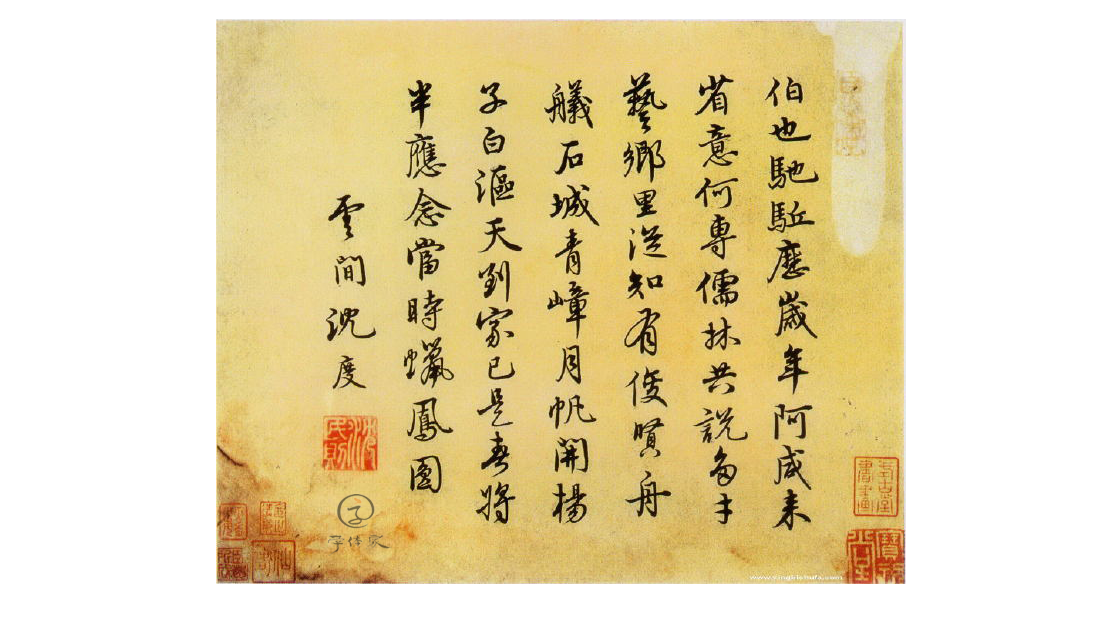 伯也馳駈歷歲年阿咸来
省意何專儒林共説多才
藝鄉里從知有俊賢舟
艤石城青嶂月帆開楊
子白漚天到家已是春將
半應念當時蠟鳳圓
雲間沈度
沈氏民則
字体家
www.yingbishufa.com